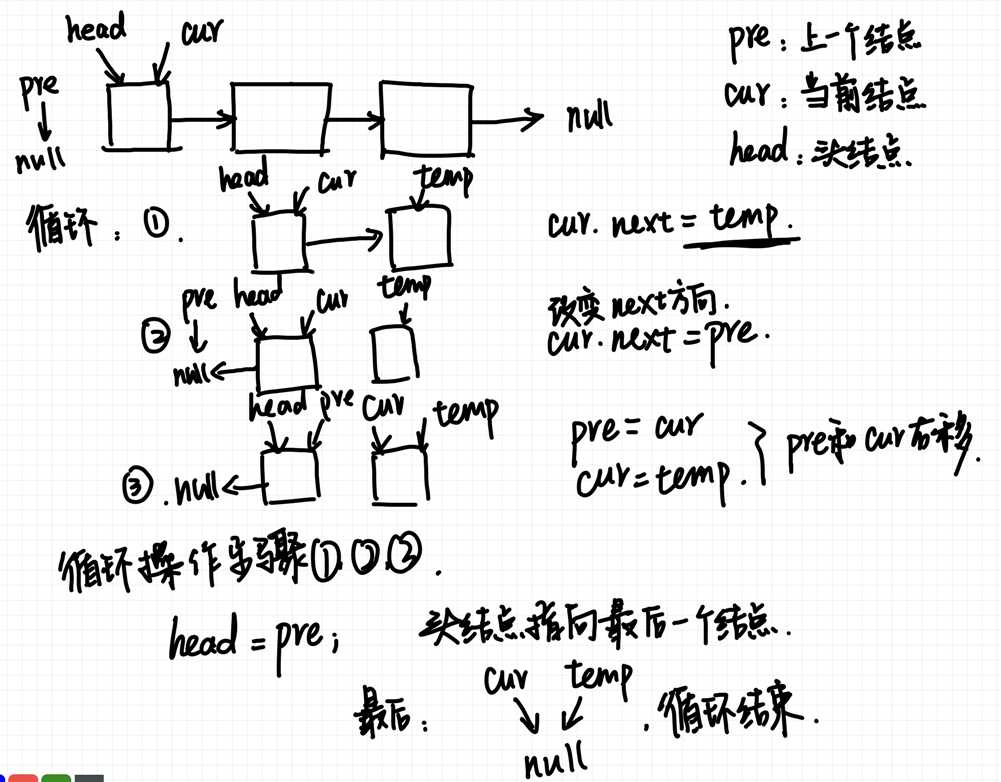 head cur
pre
null
null
pre：上一个结点
cur：当前结点
head：头结点.
head cur temp
循环：①.
cur.next=temp.
pre head cur temp
②
null
改变next方向.
cur.next=pre.
head pre cur temp
③.null
pre=cur
cur=temp.
pre和cur右移.
循环操作步骤①.②.③.
head=pre;
头结点指向最后一个结点.
cur temp
最后：
.循环结束.
null